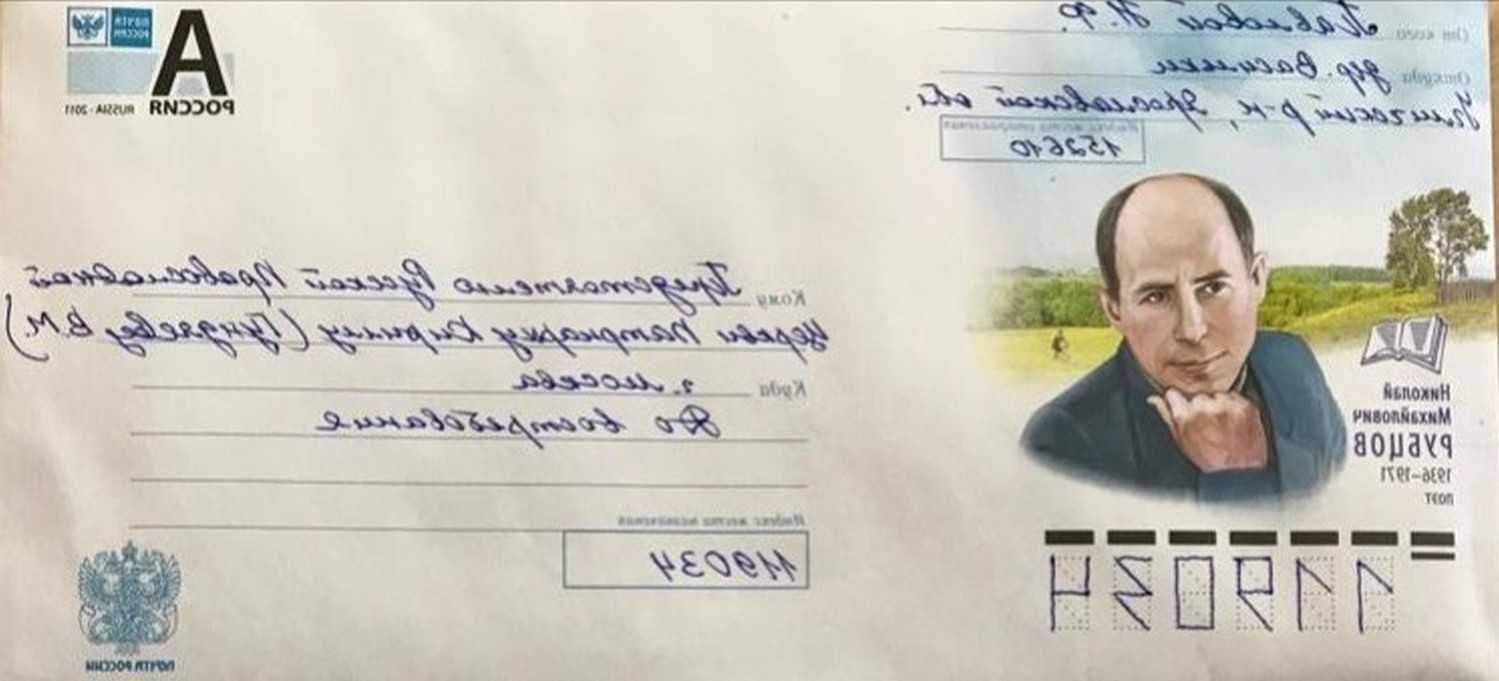 От кого Павловой Н.Ф.
Откуда дер. Васильки
Угличский р-н, Ярославской обл.
Индекс места отправления
152610
ПОЧТА РОССИИ
A
РОССИЯ
RUSSIA - 2011
Николай
Михайлович
РУБЦОВ
1936–1971
поэт
Кому Предстоятелю Русской Православной
Церкви Патриарху Кириллу (Гундяеву В.М.)
Куда г. Москва
До востребования
Индекс места назначения
119034
119034
ПОЧТА РОССИИ